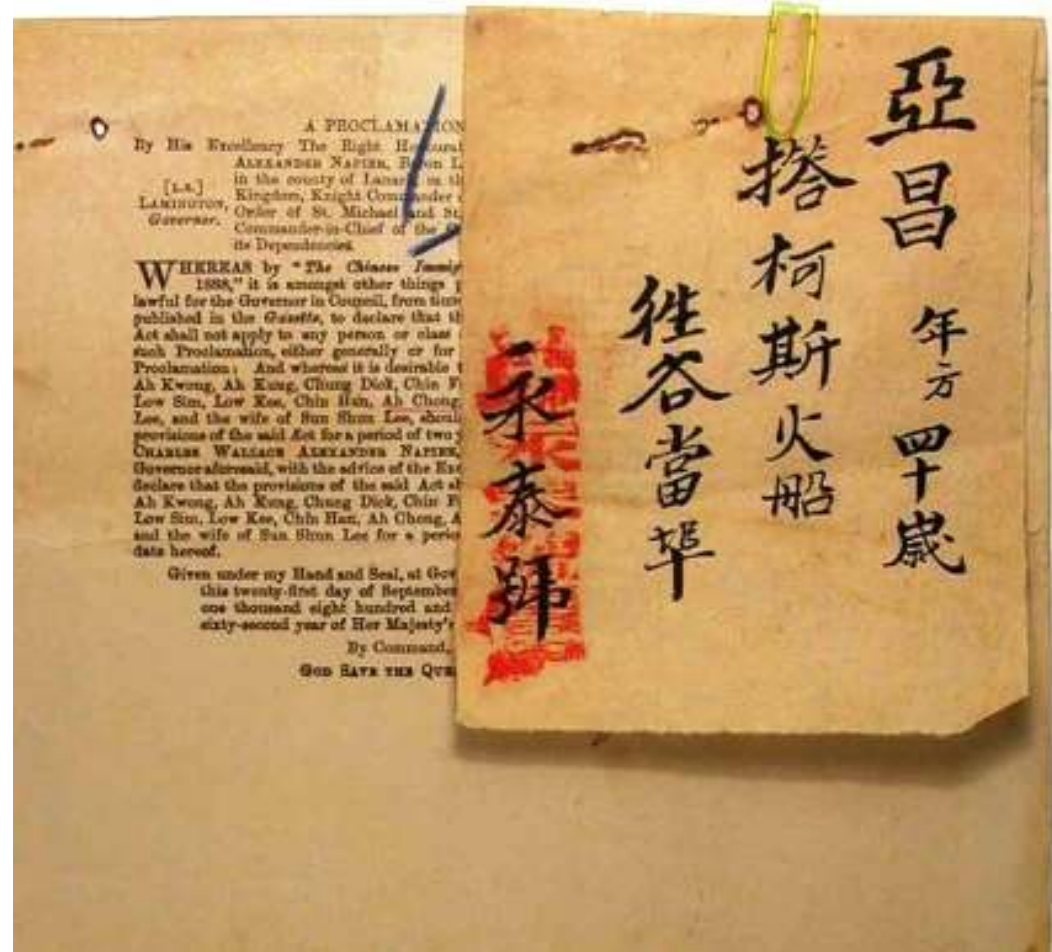 A PROCLAMATION
By His Excellency The Right Honourab
ALEXANDER NAPIER, Baron L
in the county of Lanark in th
[L.S.]
Kingdom, Knight Commander
LAMINGTON,
Order of St. Michael and St.
Governor.
Commander-in-Chief of the
its Dependencies.
WHEREAS by "The Chinese Immig
1888," it is amongst other things p
lawful for the Governor in Council, from time
published in the Gazette, to declare that th
Act shall not apply to any person or class
such Proclamation, either generally or for
Proclamation: And whereas it is desirable t
Ah Kwong, Ah Kung, Chung Dick, Chin F
Low Sim, Low Kee, Chin Han, Ah Chong,
Lee, and the wife of Sun Shun Lee, shoul
provisions of the said Act for a period of two y
CHARLES WALLACE ALEXANDER NAPIER,
Governor aforesaid, with the advice of the Exe
declare that the provisions of the said Act sh
Ah Kwong, Ah Kung, Chung Dick, Chin F
Low Sim, Low Kee, Chin Han, Ah Chong, A
and the wife of Sun Shun Lee for a perio
date hereof.
Given under my Hand and Seal, at Gov
this twenty-first day of September
one thousand eight hundred and
sixty-second year of Her Majesty's
By Command,
GOD SAVE THE QUE
亞昌 年方四十歲
搭柯斯火船
往谷當埠
永泰號